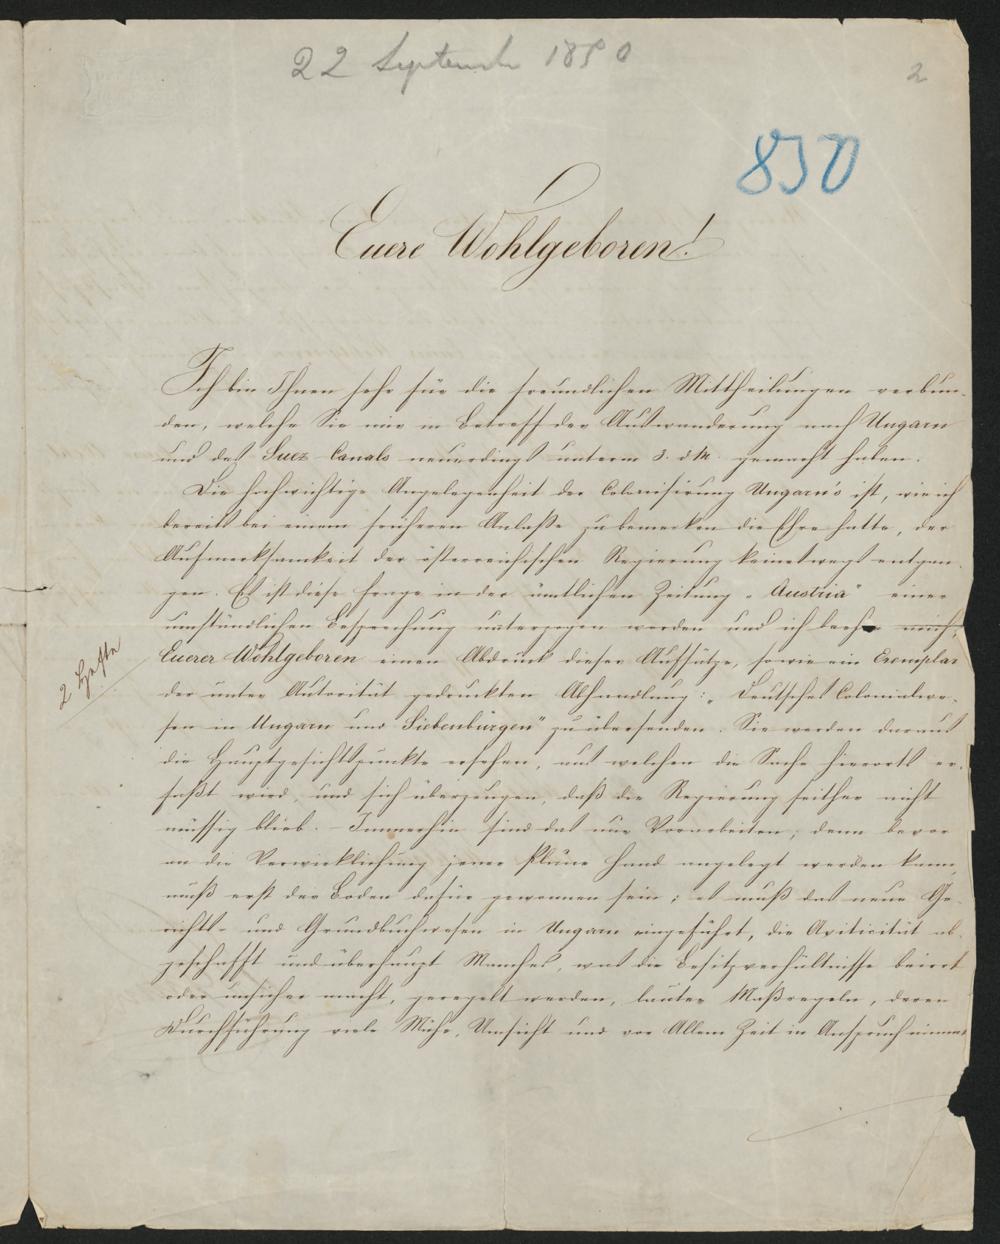 22 September 1850
2
850
Euere Wohlgeboren!
Ich bin Ihnen sehr für die freundlichen Mittheilungen verbun-
den, welche Sie mir in Betreff der Auswanderung nach Ungarn
und des Suez Canals neuerdings unterm 3. d M. gemacht haben.
Die hochwichtige Angelegenheit der Colonisirung Ungarn's ist, wie ich
bereits bei einem früheren Anlaße zu bemerken die Ehre hatte, der
Aufmerksamkeit der österreichischen Regierung keineswegs entgan-
gen. Es ist diese Frage in der ämtlichen Zeitung „Austria" einer
umständlichen Besprechung unterzogen worden und ich beehre mich,
Euerer Wohlgeboren einen Abdruck dieser Aufsätze, sowie ein Exemplar
2 Hefte
der unter Autorität gedruckten Abhandlung: „Deutsches Colonialwe-
sen in Ungarn und Siebenbürgen" zu übersenden. Sie werden daraus
die Hauptgesichtspunkte ersehen, aus welchen die Sache hierorts er-
faßt wird, und sich überzeugen, daß die Regierung seither nicht
müssig blieb. – Immerhin sind das nur Vorarbeiten; denn bevor
an die Verwirklichung jener Pläne Hand angelegt werden kann,
muß erst der Boden dafür gewonnen sein; es muß das neue Ge-
richts- und Grundbuchwesen in Ungarn eingeführt, die Aviticität ab-
geschafft und überhaupt Manches, was die Besitzverhältnisse beirrt
oder unsicher macht, geregelt werden, lauter Maßregeln, deren
Durchführung viele Mühe, Umsicht und vor Allem Zeit in Anspruch nimmt